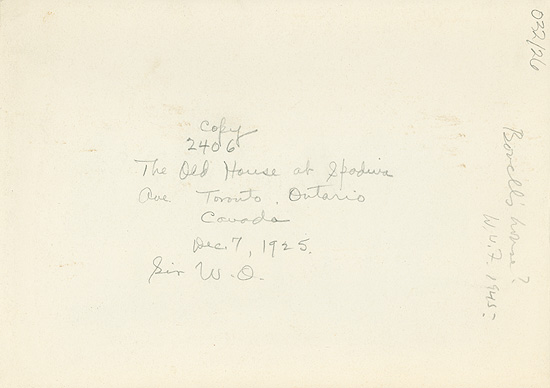 copy
2406
The Old House at Spadina
Ave Toronto, Ontario
Canada
Dec. 7, 1925.
Sir W.O.
Bovell's house?
W.W.F. 1945-
032/26